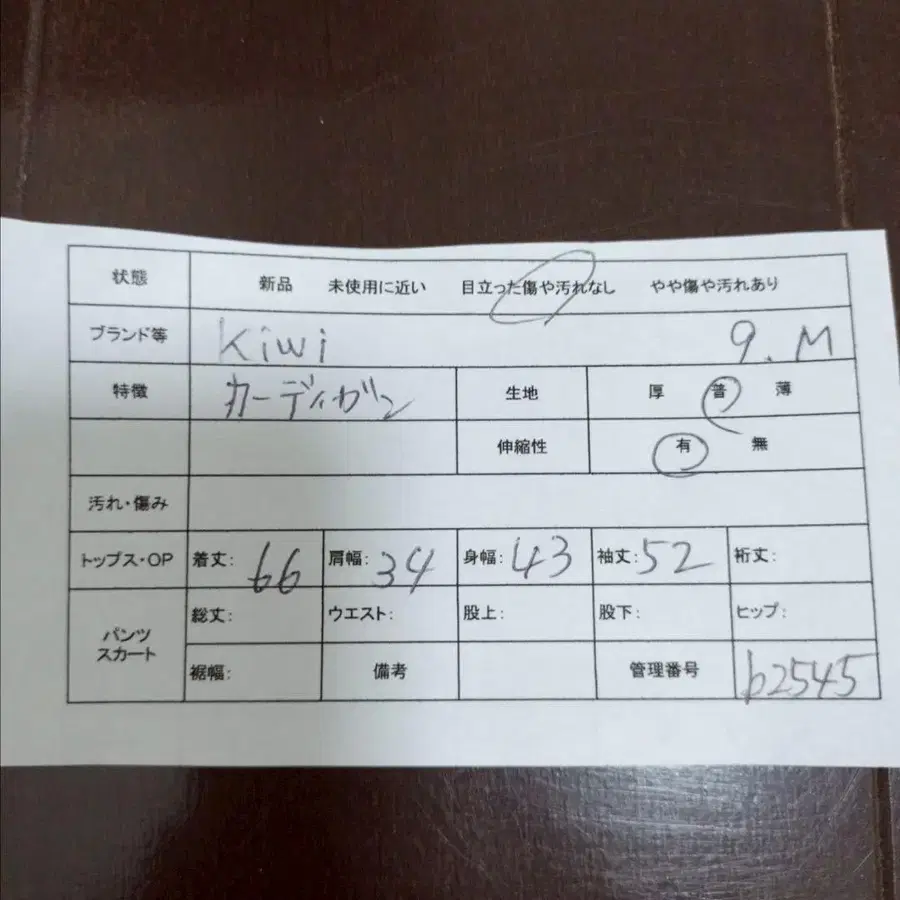 状態 新品 未使用に近い 目立った傷や汚れなし やや傷や汚れあり
ブランド等 kiwi 9.M
特徴 カーディガン 生地 厚 普 薄
伸縮性 有 無
汚れ・傷み
トップス・OP 着丈: 66 肩幅: 34 身幅: 43 袖丈: 52 裄丈:
パンツ スカート 総丈: ウエスト: 股上: 股下: ヒップ:
裾幅: 備考 管理番号 b2545